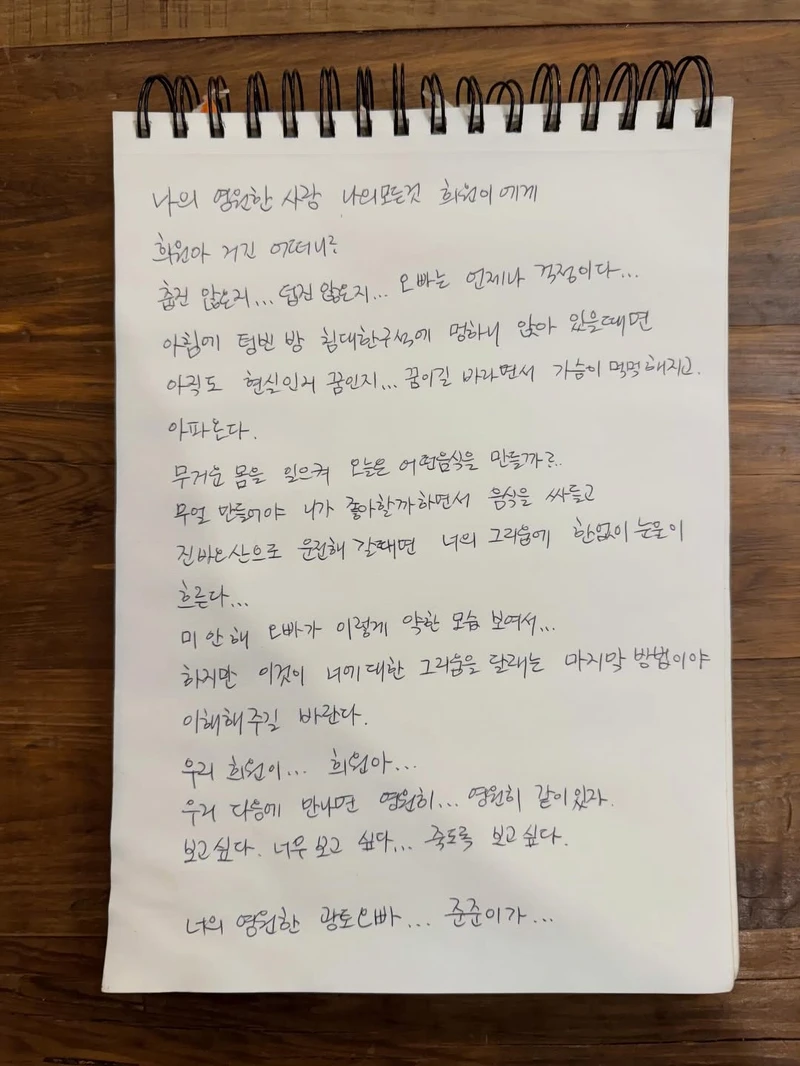 나의 영원한 사랑 나의모든것 희원이에게
희원아 거긴 어떠니?
춥진 않은지... 덥진 않은지... 오빠는 언제나 걱정이다...
아침에 텅빈 방 침대한구석에 멍하니 앉아 있을때면
아직도 현실인지 꿈인지... 꿈이길 바라면서 가슴이 먹먹해지고.
아파온다.
무거운 몸을 일으켜 오늘은 어떤음식을 만들까?..
무얼 만들어야 니가 좋아할까하면서 음식을 싸들고
진바오산으로 운전해 갈때면 너의 그리움에 한없이 눈물이
흐른다...
미안해 오빠가 이렇게 약한 모습 보여서...
하지만 이것이 너에대한 그리움을 달래는 마지막 방법이야
이해해주길 바란다.
우리 희원이... 희원아...
우리 다음에 만나면 영원히... 영원히 같이있자.
보고싶다. 너무 보고 싶다... 죽도록 보고싶다.
너의 영원한 광토오빠... 준준이가...